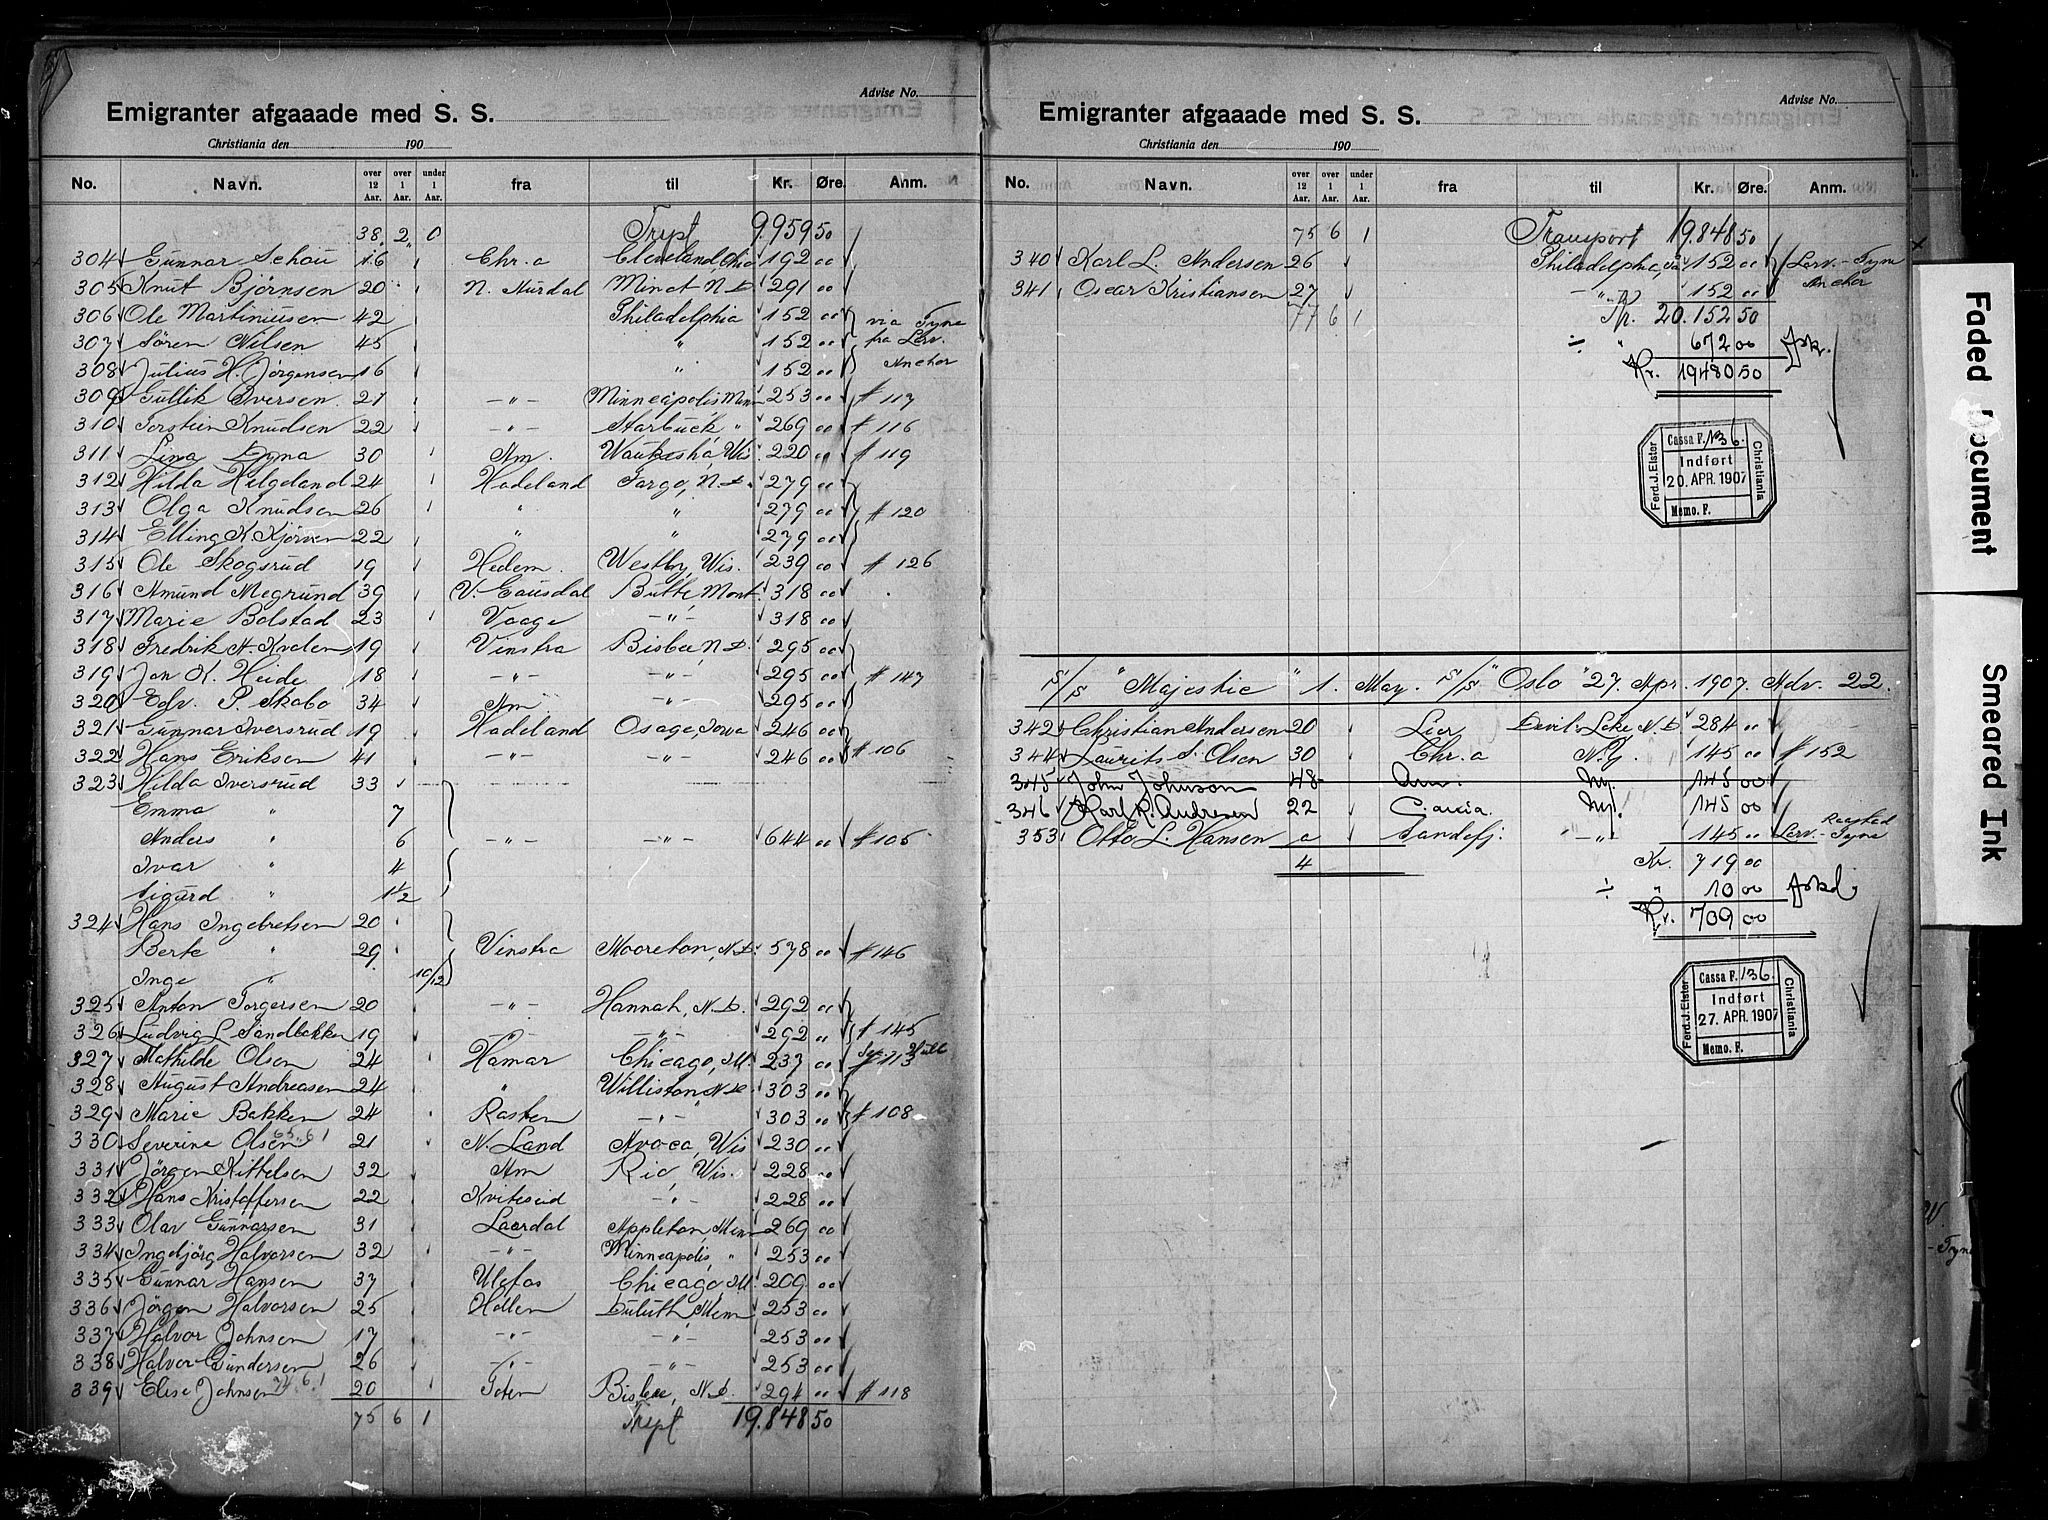 Advise No.
Emigranter afgaaade med S. S.
Christiania den 190
No. Navn. over 12 Aar. over 1 Aar. under 1 Aar. fra til Kr. Øre. Anm.
38 2 0 Trspt 9.959 50
304 Gunnar Schou 16 Chr.a Cleveland, Ohio 192 00
305 Knut Bjørnsen 20 N. Aurdal Minot N.D. 291 00
306 Ole Martiniusen 42 Philadelphia 152 00 via Tyne
307 Sören Nilsen 45 " 152 00 fra Larv.
308 Julius H. Jörgensen 16 " 152 00 Anchor
309 Gullik Iversen 21 -"- Minneapolis Minn 253 00 # 117
310 Torstein Knudsen 22 -"- Starbuck " 269 00 # 116
311 Lina 30 Am. Waukesha, Wis 220 00 # 119
312 Hilda Helgeland 24 Hadeland Fargo, N.D. 279 00
313 Olga Knudsen 26 " " 279 00 # 120
314 Elling K Kjörven 22 " " 279 00
315 Ole Skogsrud 19 Hedem. Westby, Wis. 239 00 # 126
316 Amund Megrund 39 V. Gausdal Butte, Mont. 318 00
317 Marie Bolstad 23 Vaage -"- 318 00
318 Fredrik A. Kvalem 19 Vinstra Bisbee, N.D. 295
319 Jan K. Heide 18 -"- -"- 295 00 # 147
320 Edv. P. Skabo 34 Am. -"- 295 00
321 Gunnar Iversrud 19 Hadeland Osage, Iowa 246 00
322 Hans Eriksen 41 -"- -"- 246 00 # 106
323 Hilda Iversrud 33
Emma " 7
Anders " 6 -"- -"- 644 00 # 105
Ivar " 4
Sigurd " 1 1/2
324 Hans Ingebretsen 20
Berte " 29 Vinstra Mooreton, N.D. 578 00 # 146
Inge " 10/12
325 Anton Torgersen 20 -"- Hannah, N.D. 292 00
326 Ludvig L Sandbakken 19 -"- -"- 292 " # 145
327 Mathilde Olsen 24 Hamar Chicago, Ill. 237 00 # 113 Hull
328 August Andreasen 24 " Williston N.D. 303 00
329 Marie Bakken 24 Rasten -"- 303 00 # 108
330 Severine Olsen 21 N. Land Avoca, Wis 230 00
331 Jörgen Kittelsen 32 Am Rio, Wis. 228 00
332 Hans Kristoffersen 22 Kviteseid -"- 228 00
333 Olav Gunnarsen 31 Laerdal Appleton, Minn 269 00
334 Ingebjörg Halvorsen 32 -"- Minneapolis, " 253 00
335 Gunnar Hansen 37 Ulefos Chicago, Ill. 209 00
336 Jörgen Halvorsen 25 Hollem Duluth Minn 253 00
337 Halvor Johnsen 17 -"- -"- 253 00
338 Halvor Gundersen 26 -"- -"- 253 00
339 Elise Johnsen 20 Toten Bisbee, N.D. 294 00 # 118
75 6 1 Trspt 19.848 50
Advise No.
Emigranter afgaaade med S. S.
Christiania den 190
No. Navn. over 12 Aar. over 1 Aar. under 1 Aar. fra til Kr. Øre. Anm.
75 6 1 Transport 19.848 50
340 Karl L. Andersen 26 Philadelphia, Pa 152 00 Larv. - Tyne
341 Oscar Kristiansen 27 -"- 152 00 Anchor
77 6 1 Kr. 20.152 50
÷ " 672 00 Afsk.
Kr. 19480 50
Cassa F. 136.
Ferd. J. Elster
Indført
20. APR. 1907
Memo. F.
Christiania
S/S "Majestic" 1. May. S/S "Oslo" 27. Apr. 1907. Adv. 22.
342 Christian Andersen 20 Lier Devils Lake, N.D. 284 00
344 Laurits S. Olsen 30 Chr.a N.Y. 145 00 # 152
345 John Johnson 48 Am. Ny. 145 00
346 Karl R. Andresen 22 Ny. 145 00
353 Otto L. Hansen a Sandefj. -"- 145 00 Larv. - Tyne
4 Kr. 719 00
÷ " 10 00 Afskd.
Kr. 709 00
Cassa F. 136.
Ferd. J. Elster
Indført
27. APR. 1907
Memo. F.
Christiania
Faded Document
Smeared Ink